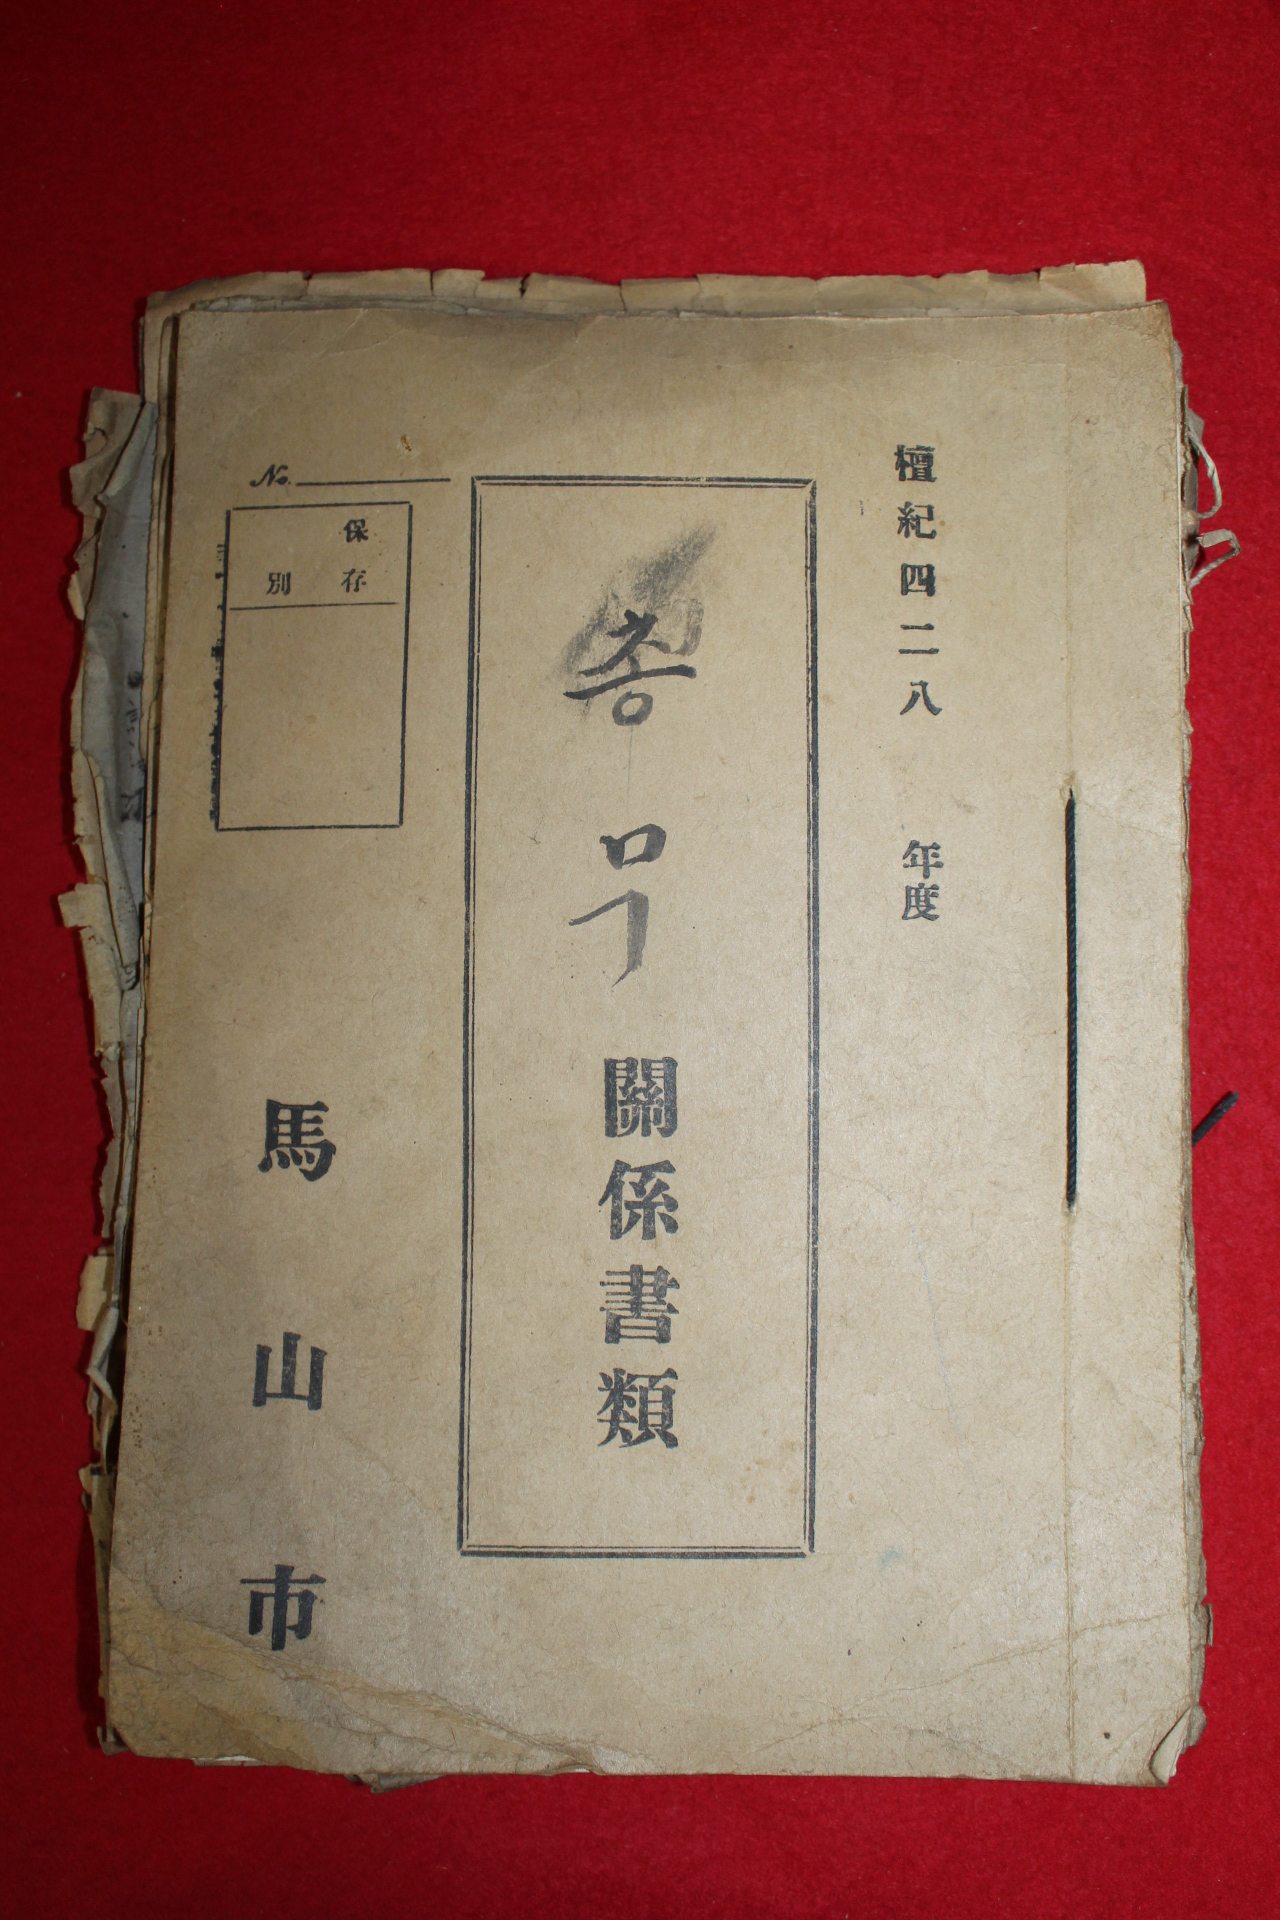 檀紀四二八 年度
총무關係書類
No.
保存
別
馬山市